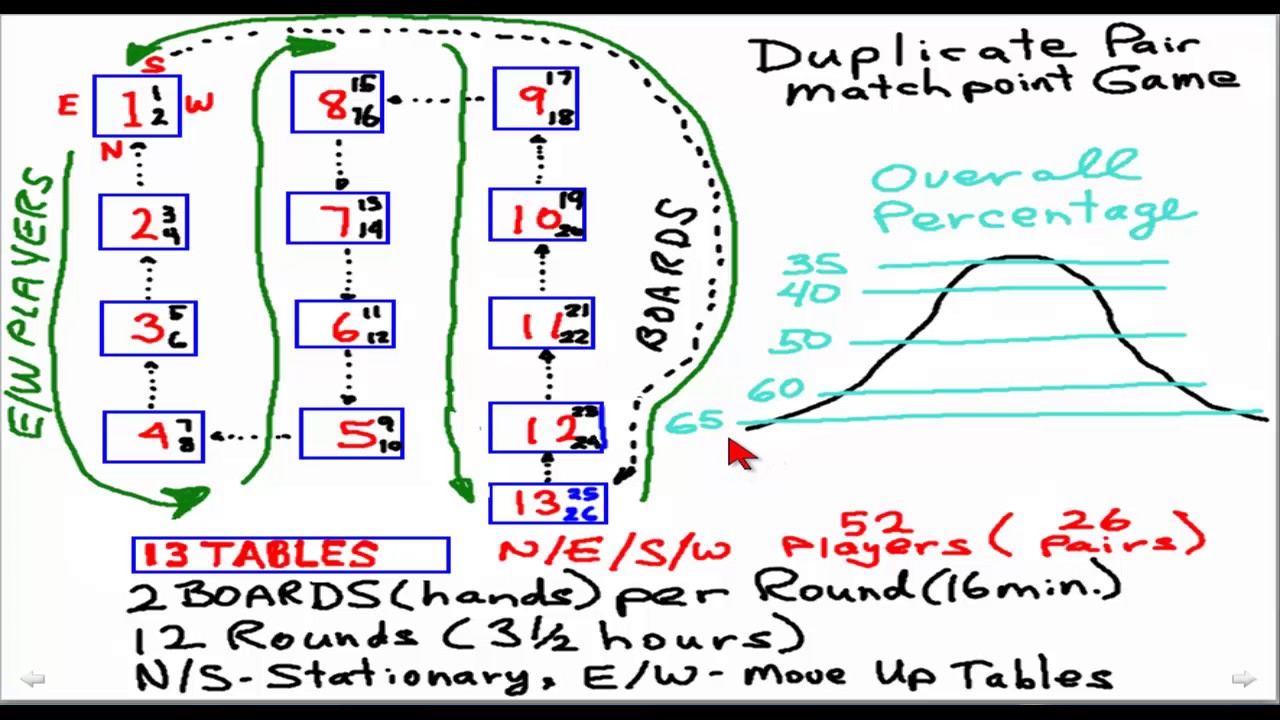 Duplicate Pair
matchpoint Game
S
E 1 1 2 W
N
2 3 4
3 5 6
4 7 8
5 9 10
6 11 12
7 13 14
8 15 16
9 17 18
10 19 20
11 21 22
12 23 24
13 25 26
E/W PLAYERS
BOARDS
Overall
Percentage
35
40
50
60
65
13 TABLES
N/E/S/W 52 Players (26 Pairs)
2 BOARDS (hands) per Round (16 min.)
12 Rounds (3 1/2 hours)
N/S - Stationary, E/W - Move Up Tables